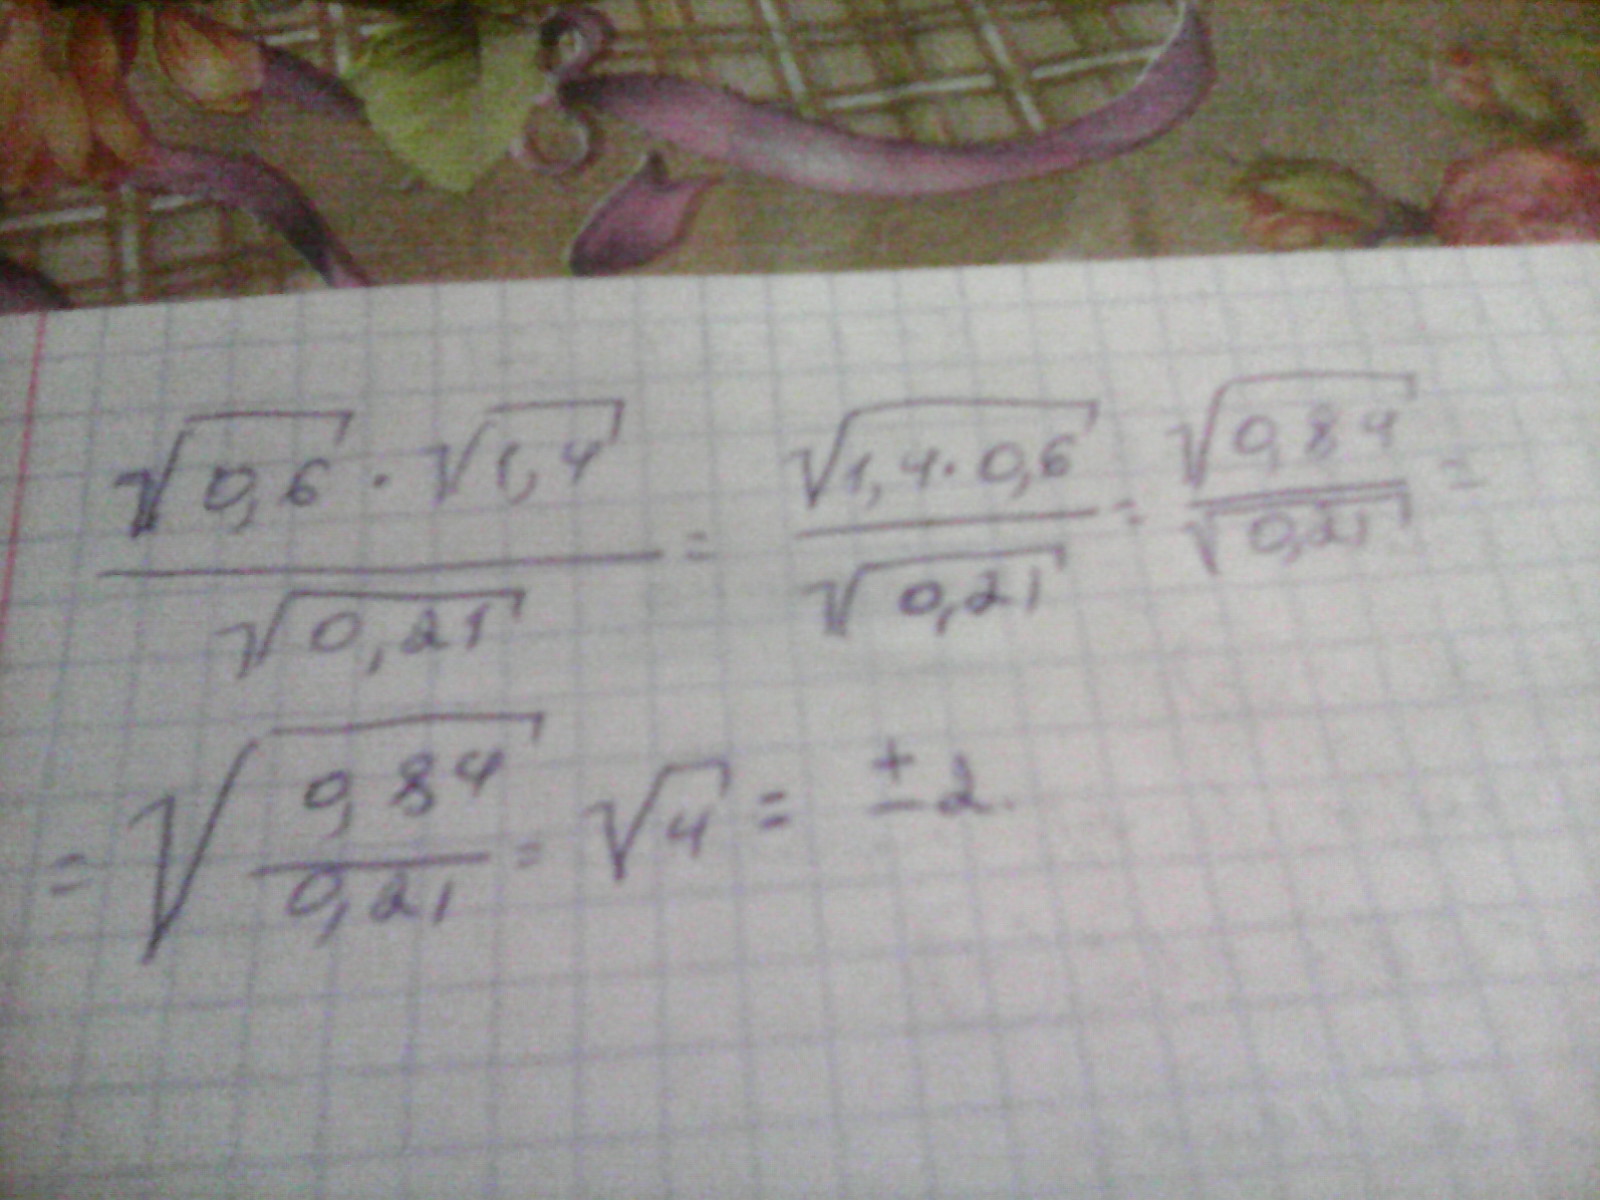 √0,6 · √1,4 / √0,21 = √1,4·0,6 / √0,21 = √0,84 / √0,21 =
= √0,84/0,21 = √4 = ±2.